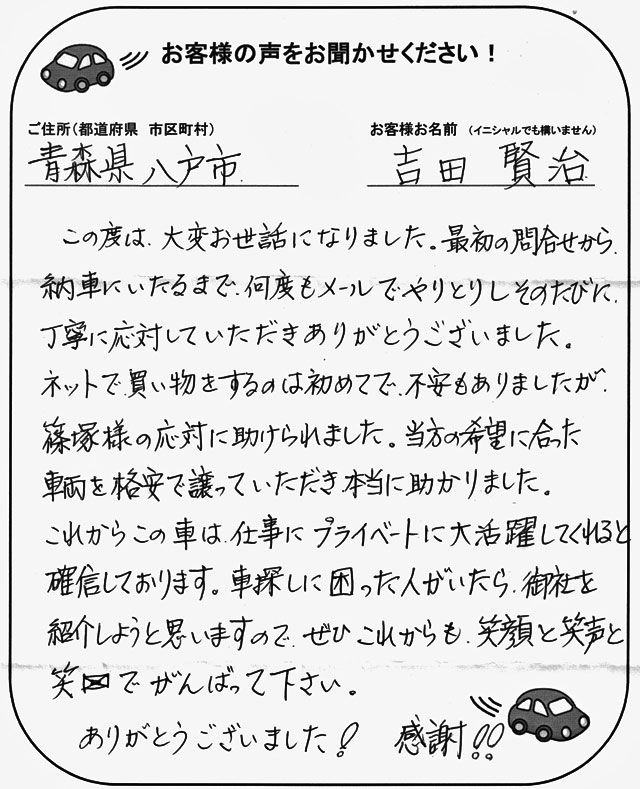 お客様の声をお聞かせください！
ご住所（都道府県　市区町村）
お客様お名前　（イニシャルでも構いません）
青森県八戸市
吉田　賢治
この度は、大変お世話になりました。最初の問合せから、
納車にいたるまで、何度もメールでやりとりしそのたびに、
丁寧に応対していただきありがとうございました。
ネットで、買い物をするのは初めてで、不安もありましたが、
篠塚様の応対に助けられました。当方の希望に合った
車両を格安で譲っていただき、本当に助かりました。
これからこの車は、仕事にプライベートに大活躍してくれると
確信しております。車探しに困った人がいたら、御社を
紹介しようと思いますので、ぜひこれからも、笑顔と笑声と
笑でがんばって下さい。
ありがとうございました！　感謝！！